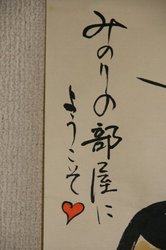 みのりの部屋に
ようこそ